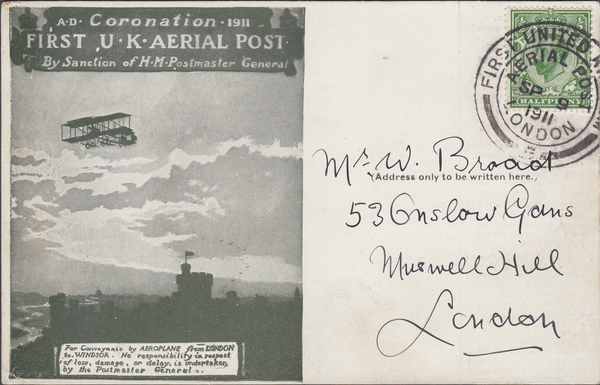 A·D· Coronation · 1911
FIRST · U · K · AERIAL POST ·
By Sanction of H·M·Postmaster General
For Conveyance by AEROPLANE from LONDON
to WINDSOR. No responsibility in respect
of loss, damage, or delay, is undertaken
by the Postmaster General.
HALFPENNY
FIRST UNITED
AERIAL POST
SP 9
1911
LONDON
Mr W. Broad
(Address only to be written here.)
53 Onslow Gdns
Muswell Hill
London